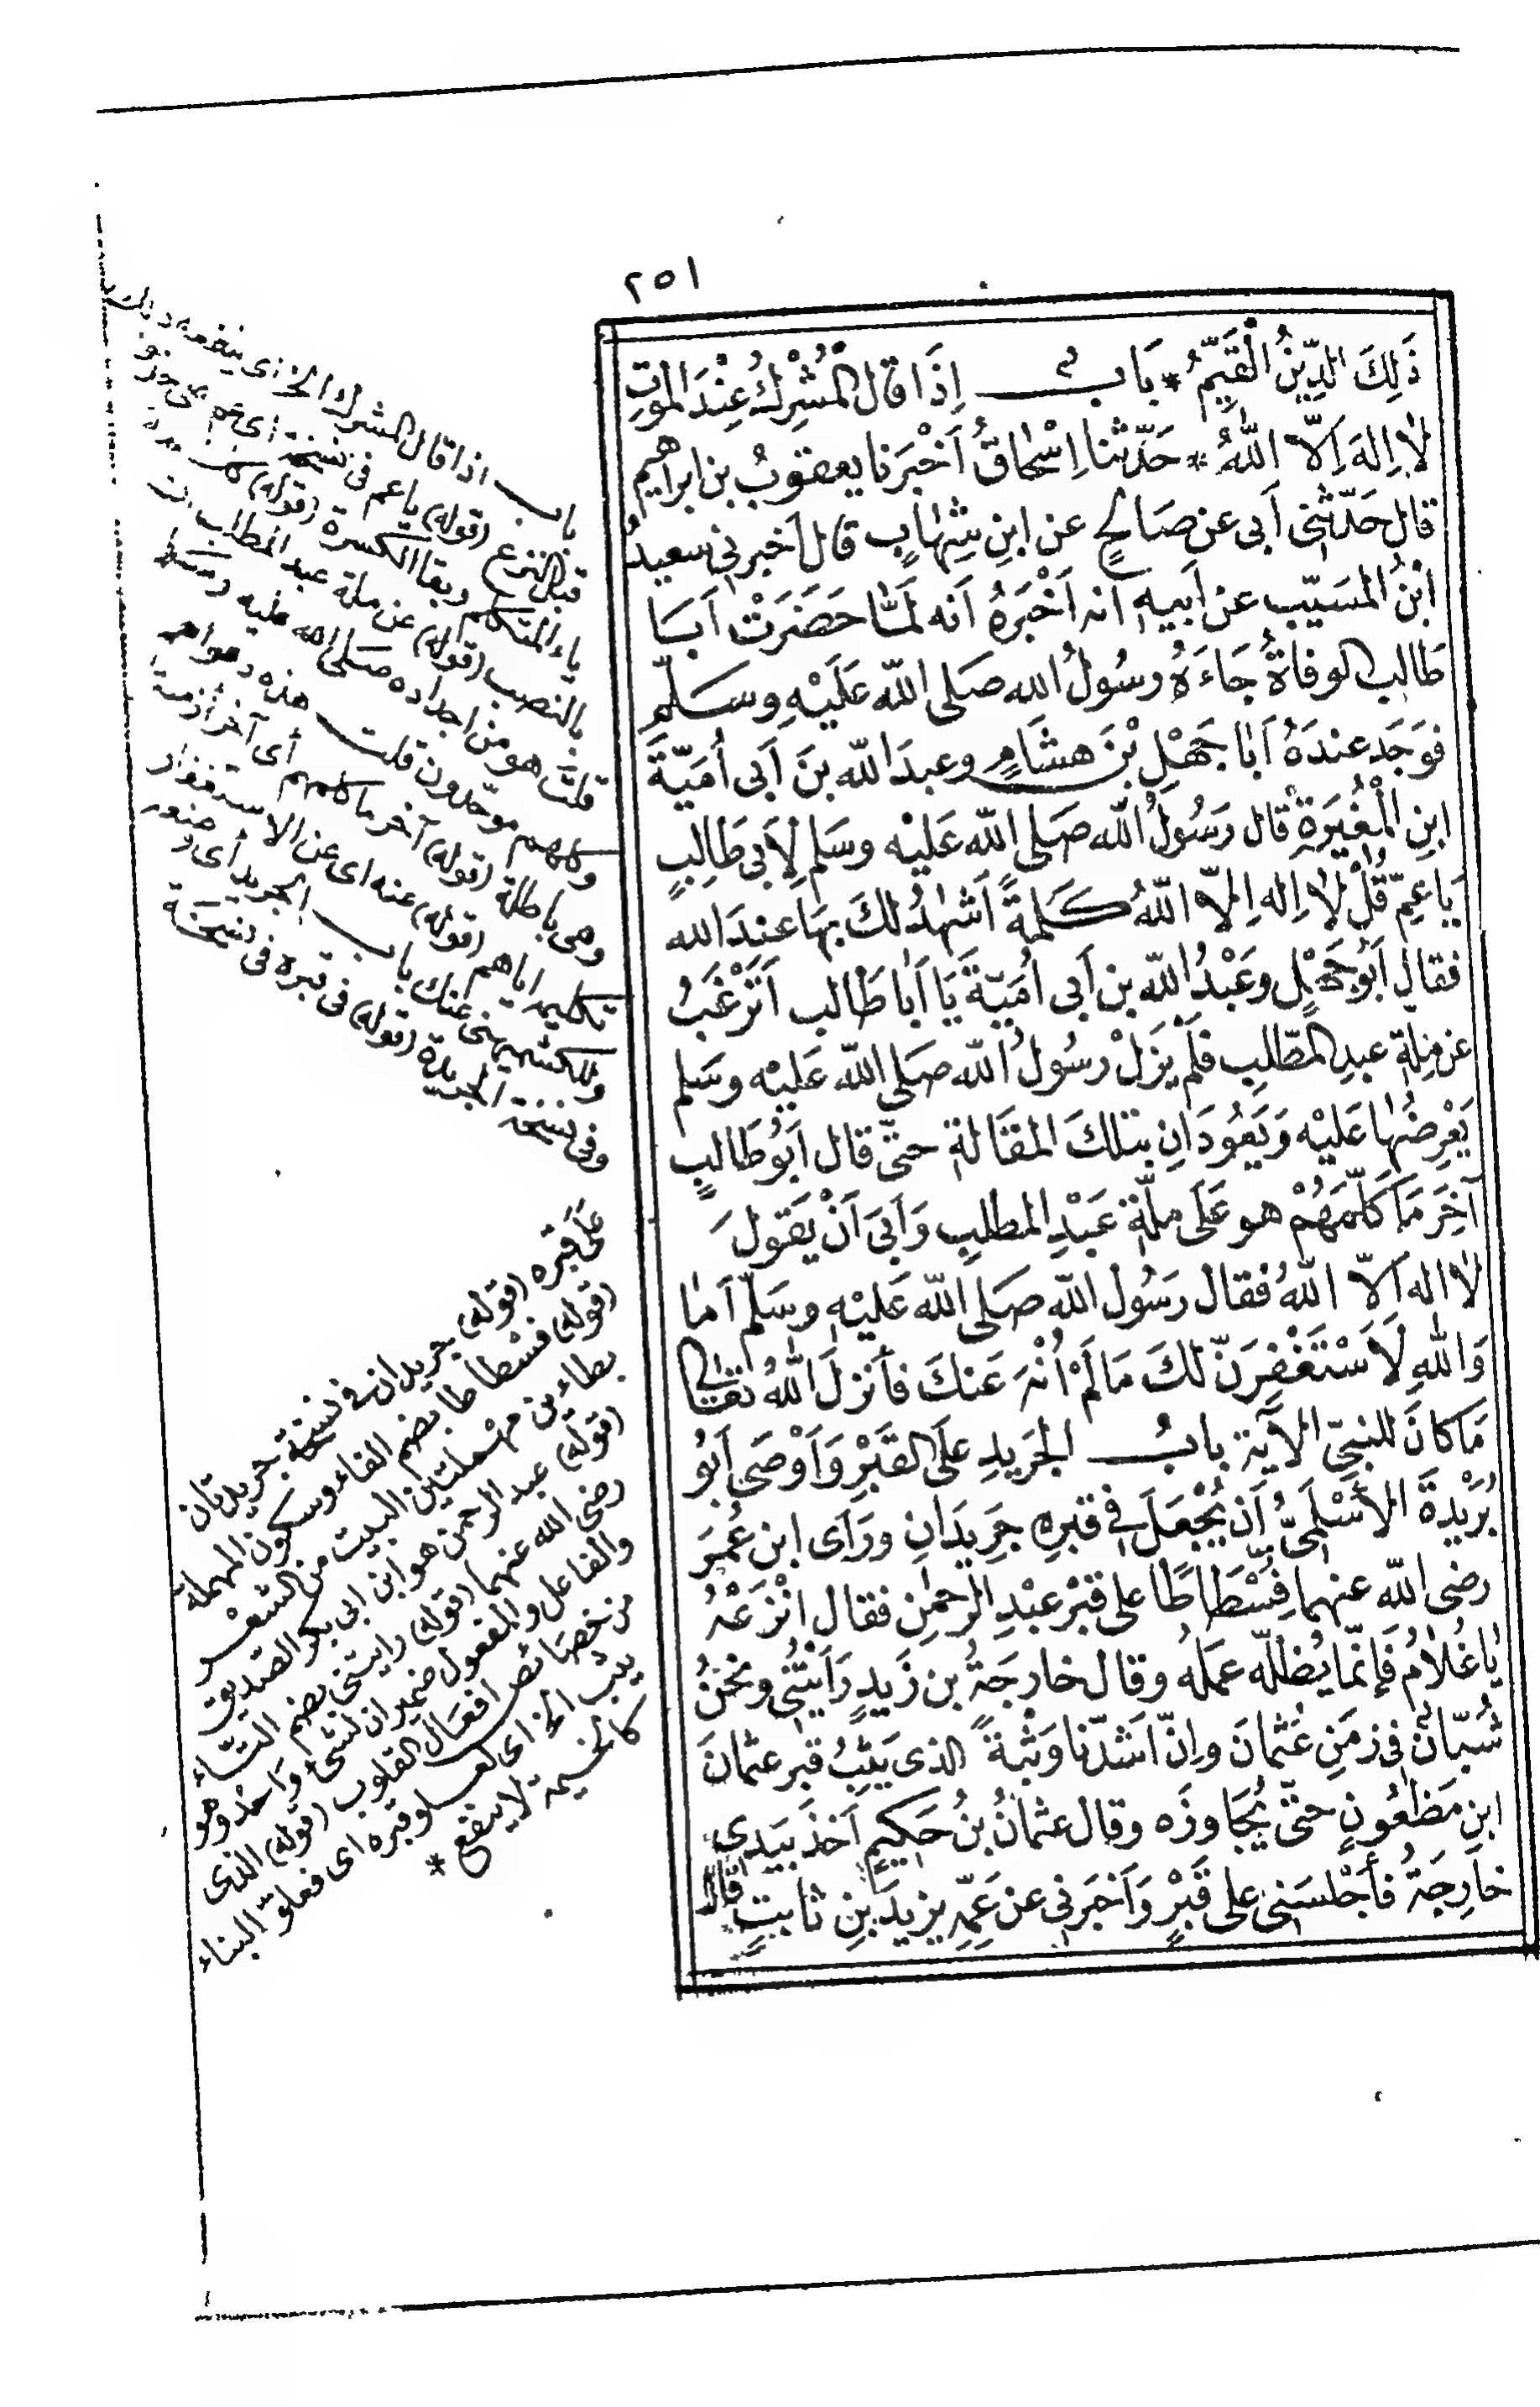 ٢٥١
ذَلِكَ الدِّينُ الْقَيِّمُ * بَابٌ اِذَا قَالَ الْمُشْرِكُ عِنْدَ الْمَوْتِ
لَا اِلهَ اِلَّا اللّٰهُ * حَدَّثنا اِسْحٰاقُ أَخْبَرَنا يعقوبُ بن ابراهيم
قال حَدَّثَنِى أَبى عن صَالحٍ عن ابنِ شِهٰابٍ قال أَخبرنى سعيدُ
ابْنُ المسَيّب عن أَبيهِ أنه أَخْبَرَهُ أَنه لَمَّا حَضَرَتْ اَبَا
طَالب الوفاةُ جَاءَهُ رسُولُ الله صَلى اللّٰه عَلَيْهِ وسَلّم
فوَجَد عندَهُ اَبَا جَهْلِ بْنَ هشَامٍ وعبدَ اللّٰه بنَ اَبى اُمَيّةَ
ابنِ الْمُغيَرَةِ قال رَسُولُ اللّٰه صَلى اللّٰه عَليْه وسَلم لِأَبى طَالِبٍ
يَا عَمِّ قُلْ لَا اِله اِلاّ اللّٰهُ كَلِمةً اَشْهَدُ لكَ بهَا عندَ الله
فقال اَبُو جَهْلٍ وعَبْدُ اللّٰه بن اَبى اُمَيّةَ يَا اَبَا طَالب اَتَرْغَبُ
عن مِلةِ عبدِ المطّلِب فلَمْ يزَلْ رسُولُ اللّٰه صَلى اللّٰه عَليْه وسَلم
يَعْرِضُهٰا عَليْه وَيَعُودَانِ بتلكَ المقَالةِ حتّى قال اَبُو طَالبٍ
آخِرَ مَا كَلَّمَهُمْ هو عَلَى ملّةِ عَبْدِ المطلبِ وَاَبى اَنْ يَقولَ
لا اله الا اللّٰهُ فقال رَسُول اللّٰه صَلى اللّٰه عَليْه وسَلّم اَمَا
وَاللّٰهِ لَأَسْتَغْفِرَنّ لكَ مَا لَمْ اُنْهَ عَنكَ فأنزلَ اللّٰهُ تعَالى
مَا كانَ للنبيّ الآيَة بابُ الجَرِيدِ عَلَى القَبْرِ وَاَوْصَى اَبُو
بُرَيْدةَ الأَسْلَمِىُّ اَن يُجْعَلَ فى قبرِهِ جَرِيدَانِ ورَأَى ابن عُمَرَ
رضى اللّٰه عنهما فِسْطَاطًا على قبْر عَبْدِ الرحمٰنِ فقال انْزعْهُ
يَا غُلاَمُ فَإِنّمَا يُظلّه عمَلهُ وقال خارجَةُ بن زَيدٍ رَأَيتُنى ونحْنُ
شُبّانٌ فى زمَنِ عُثمانَ وإنّ اَشدّنَا وَثْبةً الذى يَثِبُ قبر عثمانَ
ابنِ مَظعُونٍ حتّى يُجَاوزَه وقال عثمانُ بنُ حَكيمٍ اَخذَ بيَدِى
خارِجَةُ فأَجْلسَنى على قَبْرٍ وَأَخبَرنى عن عَمِّهِ يزيدَ بنِ ثابتٍ قال
باب اذا قال المشرك الخ اى ينفعه ذلك
قبل النزع (قوله) ياعم فى نسخة اى عم
ياء المتكلم وبقا الكسرة (قوله) كلمة
بالنصب (قوله) عن ملة عبد المطلب ان
قلت هو من اجداده صلى الله عليه وسلم
وكلهم موحّدون قلت هذه دعواهم
وهى باطلة (قوله) آخر ماكلمهم أى آخر أزمنة
تكليمه اياهم (قوله) عنه اى عن الاستغفار
وللكشميهنى عنك باب الجريد أى وضعه
وفى نسخة الجريدة (قوله) فى قبره فى نسخة
على قبره (قوله) جريدان فى نسخة جريدتان
(قوله) فسطاطا بضم الفاء وسكون المهملة
بطاءين مهملتين البيت من الشعر
(قوله) عبد الرحمن هو ابن ابى بكر الصديق
رضى الله عنهما (قوله) رايتنى بضم التاء
والفاعل والمفعول ضميران لشئ واحد وهو
من خصائص افعال القلوب (قوله) الذى
يثب الخ اى لعلو قبره اى فعلوّ البناء
كالخيمة لا ينفع *